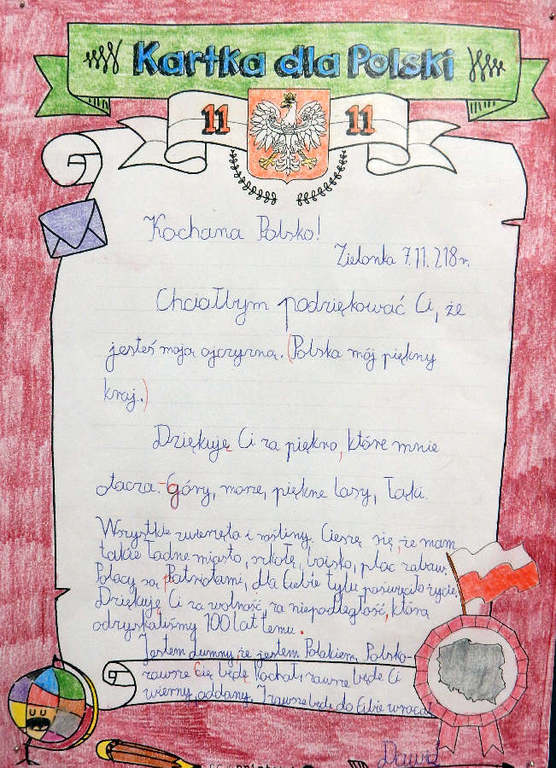 Kartka dla Polski
11 11
Kochana Polsko!
Zielonka 7.11.218r.
Chciałbym podziękować Ci, że
jesteś moja ojczyzna. (Polska mój piękny
kraj.)
Dziękuję Ci za piękno, które mnie
otacza. Góry, morze, piękne lasy, łąki.
Wszystkie zwierzęta i rośliny. Cieszę się, że mam
takie ładne miasto, szkołę, boisko, plac zabaw.
Polacy są Patriotami, dla Ciebie tylu poświęciło życie.
Dziękuję Ci za wolność, za niepodległość, którą
odzyskaliśmy 100 lat temu.
Jestem dumny, że jestem Polakiem. Polsko-
zawsze Cię będę kochał, zawsze będę Ci
wierny, oddany. I zawsze będę do Ciebie
Dawid